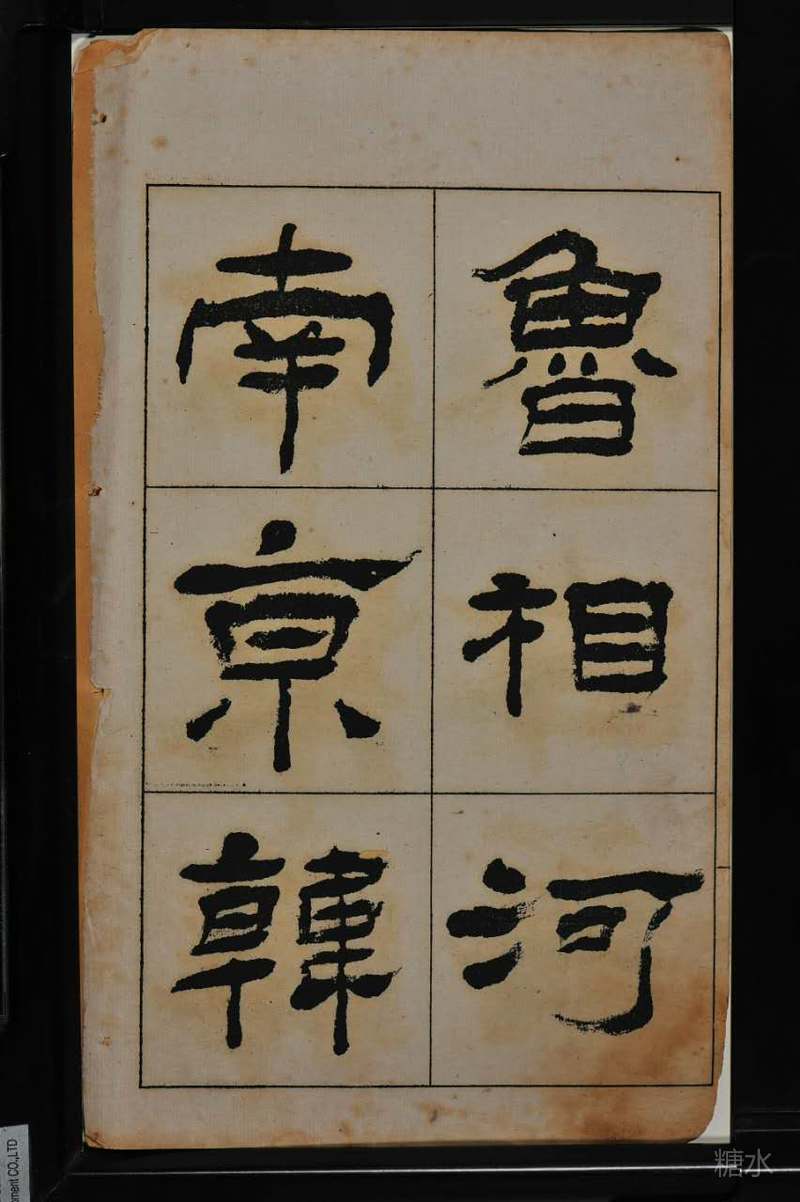 魯相河
南京韓
ment CO.,LTD
糖水